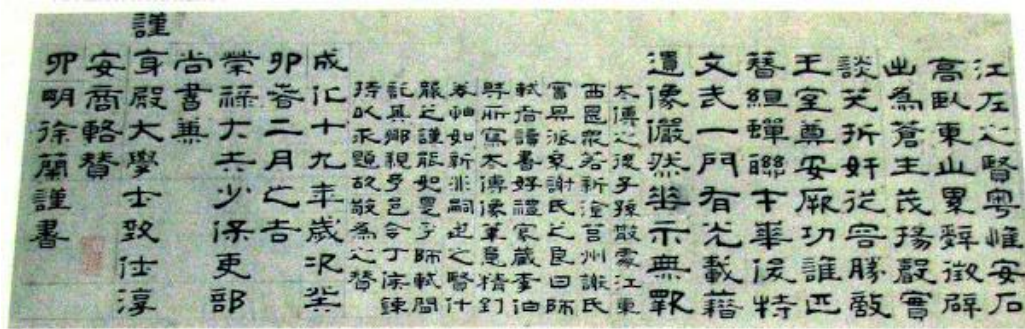 江左之賢粤惟安石
高臥東山累辭徵辟
出為蒼生茂揚聲實
談笑折奸從容勝敵
王室尊安厥功誰匹
簪組蟬聯才華俊特
文武一門有光載籍
遺像儼然垂示無斁
太傅之後子孫散處江東
西最衆若新淦莒州謝氏
富早派謝氏之良曰師
軾者讀書好禮家藏李伯
時所寫太傅像筆意精到
裝軸如新非嗣之賢什
襲之謹能如是乎師軾間
託其鄉親予邑令丁侯鍊
持以求題故敬為之贊
成化十九年歲次癸
卯春二月之吉
榮祿大夫少保吏部
尚書兼
謹身殿大學士致仕淳
安商輅贊
四明徐蘭謹書